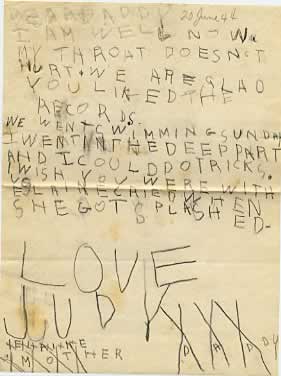 DEAR DADDY 20 June 44
I AM WELL NOW
MY THROAT DOESNOT
HURT. WE ARE GLAD
YOU LIKED THE
RECORDS.
WE WENT SWIMMING SUNDAY
I WENT IN THE DEEP PART
AND I COULD DO TRICKS.
I WISH YOU WERE WITH
US ELAINE CRIED WHEN
SHE GOT SPLASHED
ED-
LOVE
JUDY XXX
DADDY
XXXXX MOTHER